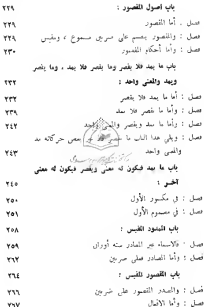 باب اصول المقصور : ٢٢٩
فصل . أما المقصور ٢٢٩
فصل : والمقصور ينقسم على ضربين مسموع ، ومقيس ٢٢٩
فصل : وأما أحكام المقصور ٢٣٠
باب ما يمد فلا يقصر وما يقصر فلا يمد ، وما يقصر
ويمد والمعنى واحد : ٢٣٢
فصل : أما ما يمد فلا يقصر ٢٣٢
فصل : وأما ما يقصر فلا يمد ٢٣٩
فصل : وأما ما يمد ويقصر والمعنى واحد ٢٤٢
فصل : ويلي هذا الباب ما يقصر حركاته مد
والمعنى واحد ٢٤٣
باب ما يمد فيكون له معنى ويقصر فيكون له معنى
آخر : ٢٤٥
فصل : في مكسور الأول ٢٥٠
فصل : في مضموم الأول ٢٥١
باب الممدود المقيس : ٢٥٨
فصل : فالاسماء غير المصادر ستة أوزان ٢٥٩
فصل : وأما المصادر فعلى ضربين ٢٦٢
باب المقصور المقيس : ٢٦٤
فصل : والمصدر المقصور على ضربين ٢٦٦
فصل : وأما الافعال ٢٦٧